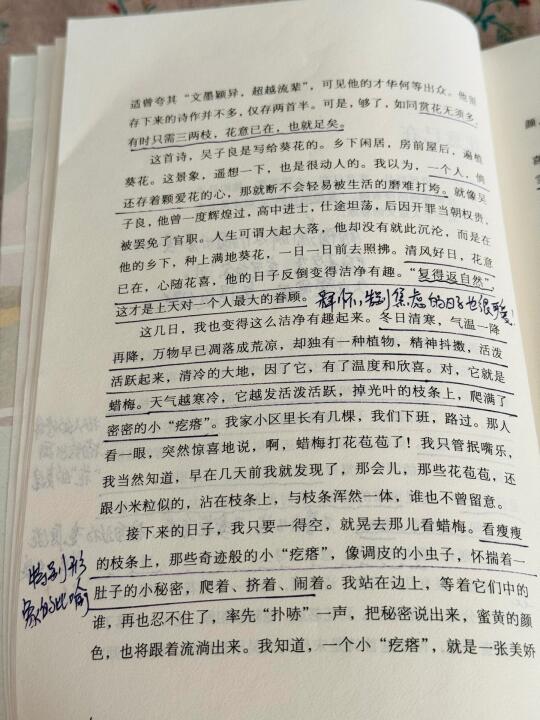 适曾夸其“文墨颖异，超越流辈”，可见他的才华何等出众。他留
存下来的诗作并不多，仅存两首半。可是，够了，如同赏花无须多，
有时只需三两枝，花意已在，也就足矣。
这首诗，吴子良是写给葵花的。乡下闲居，房前屋后，遍植
葵花。这景象，遥想一下，也是很动人的。我以为，一个人，倘
还存着颗爱花的心，那就断不会轻易被生活的磨难打垮。就像吴
子良，他曾一度辉煌过，高中进士，仕途坦荡，后因开罪当朝权贵，
被罢免了官职。人生可谓大起大落，他却没有就此沉沦，而是在
他的乡下，种上满地葵花，一日一日前去照拂。清风好日，花意
已在，心随花喜，他的日子反倒变得洁净有趣。“复得返自然”，
这才是上天对一个人最大的眷顾。
焦虑的日子也很
这几日，我也变得这么洁净有趣起来。冬日清寒，气温一降
再降，万物早已凋落成荒凉，却独有一种植物，精神抖擞，活泼
活跃起来，清冷的大地，因了它，有了温度和欣喜。对，它就是
蜡梅。天气越寒冷，它越发活泼活跃，掉光叶的枝条上，爬满了
密密的小“疙瘩”。我家小区里长有几棵，我们下班，路过。那人
看一眼，突然惊喜地说，啊，蜡梅打花苞苞了！我只管抿嘴乐，
我当然知道，早在几天前我就发现了，那会儿，那些花苞苞，还
跟小米粒似的，沾在枝条上，与枝条浑然一体，谁也不曾留意。
接下来的日子，我只要一得空，就晃去那儿看蜡梅。看瘦瘦
的枝条上，那些奇迹般的小“疙瘩”，像调皮的小虫子，怀揣着一
肚子的小秘密，爬着、挤着、闹着。我站在边上，等着它们中的
谁，再也忍不住了，率先“扑哧”一声，把秘密说出来，蜜黄的颜
色，也将跟着流淌出来。我知道，一个小“疙瘩”，就是一张美娇
特别形
象的比喻